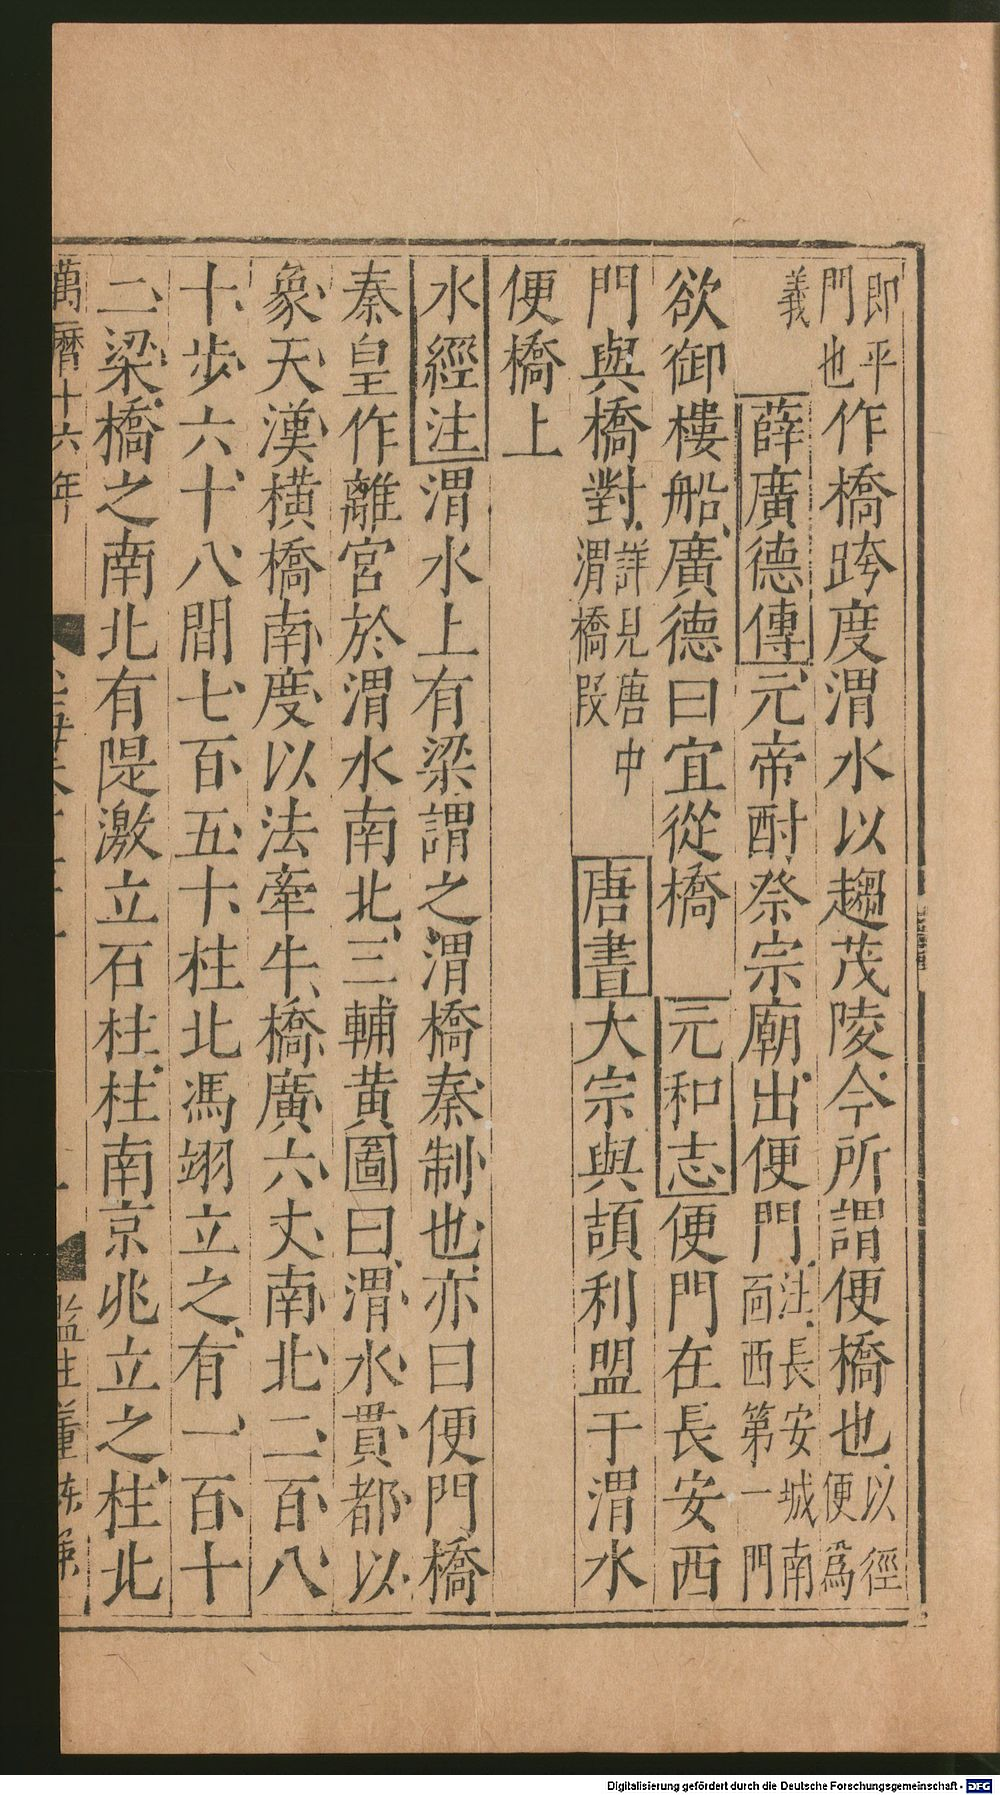 即平門也作橋跨度渭水以趨茂陵今所謂便橋也以徑便爲
義 薛廣德傳元帝酎祭宗廟出便門注長安城南面西第一門
欲御樓船廣德曰宜從橋 元和志便門在長安西
門與橋對詳見唐中渭橋叚 唐書大宗與頡利盟于渭水
便橋上
水經注渭水上有梁謂之渭橋秦制也亦曰便門橋
秦皇作離宮於渭水南北三輔黄圖曰渭水貫都以
象天漢橫橋南度以法牽牛橋廣六丈南北二百八
十步六十八間七百五十柱北馮翊立之有一百十
二梁橋之南北有隄激立石柱柱南京兆立之柱北
萬曆十六年
監生董
Digitalisierung gefördert durch die Deutsche Forschungsgemeinschaft - DFG